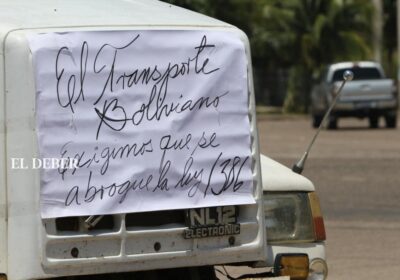 El Transporte
Boliviano
Exigimos que se
abrogue la ley 1386
EL DEBER
NL12
ELECTRONIC